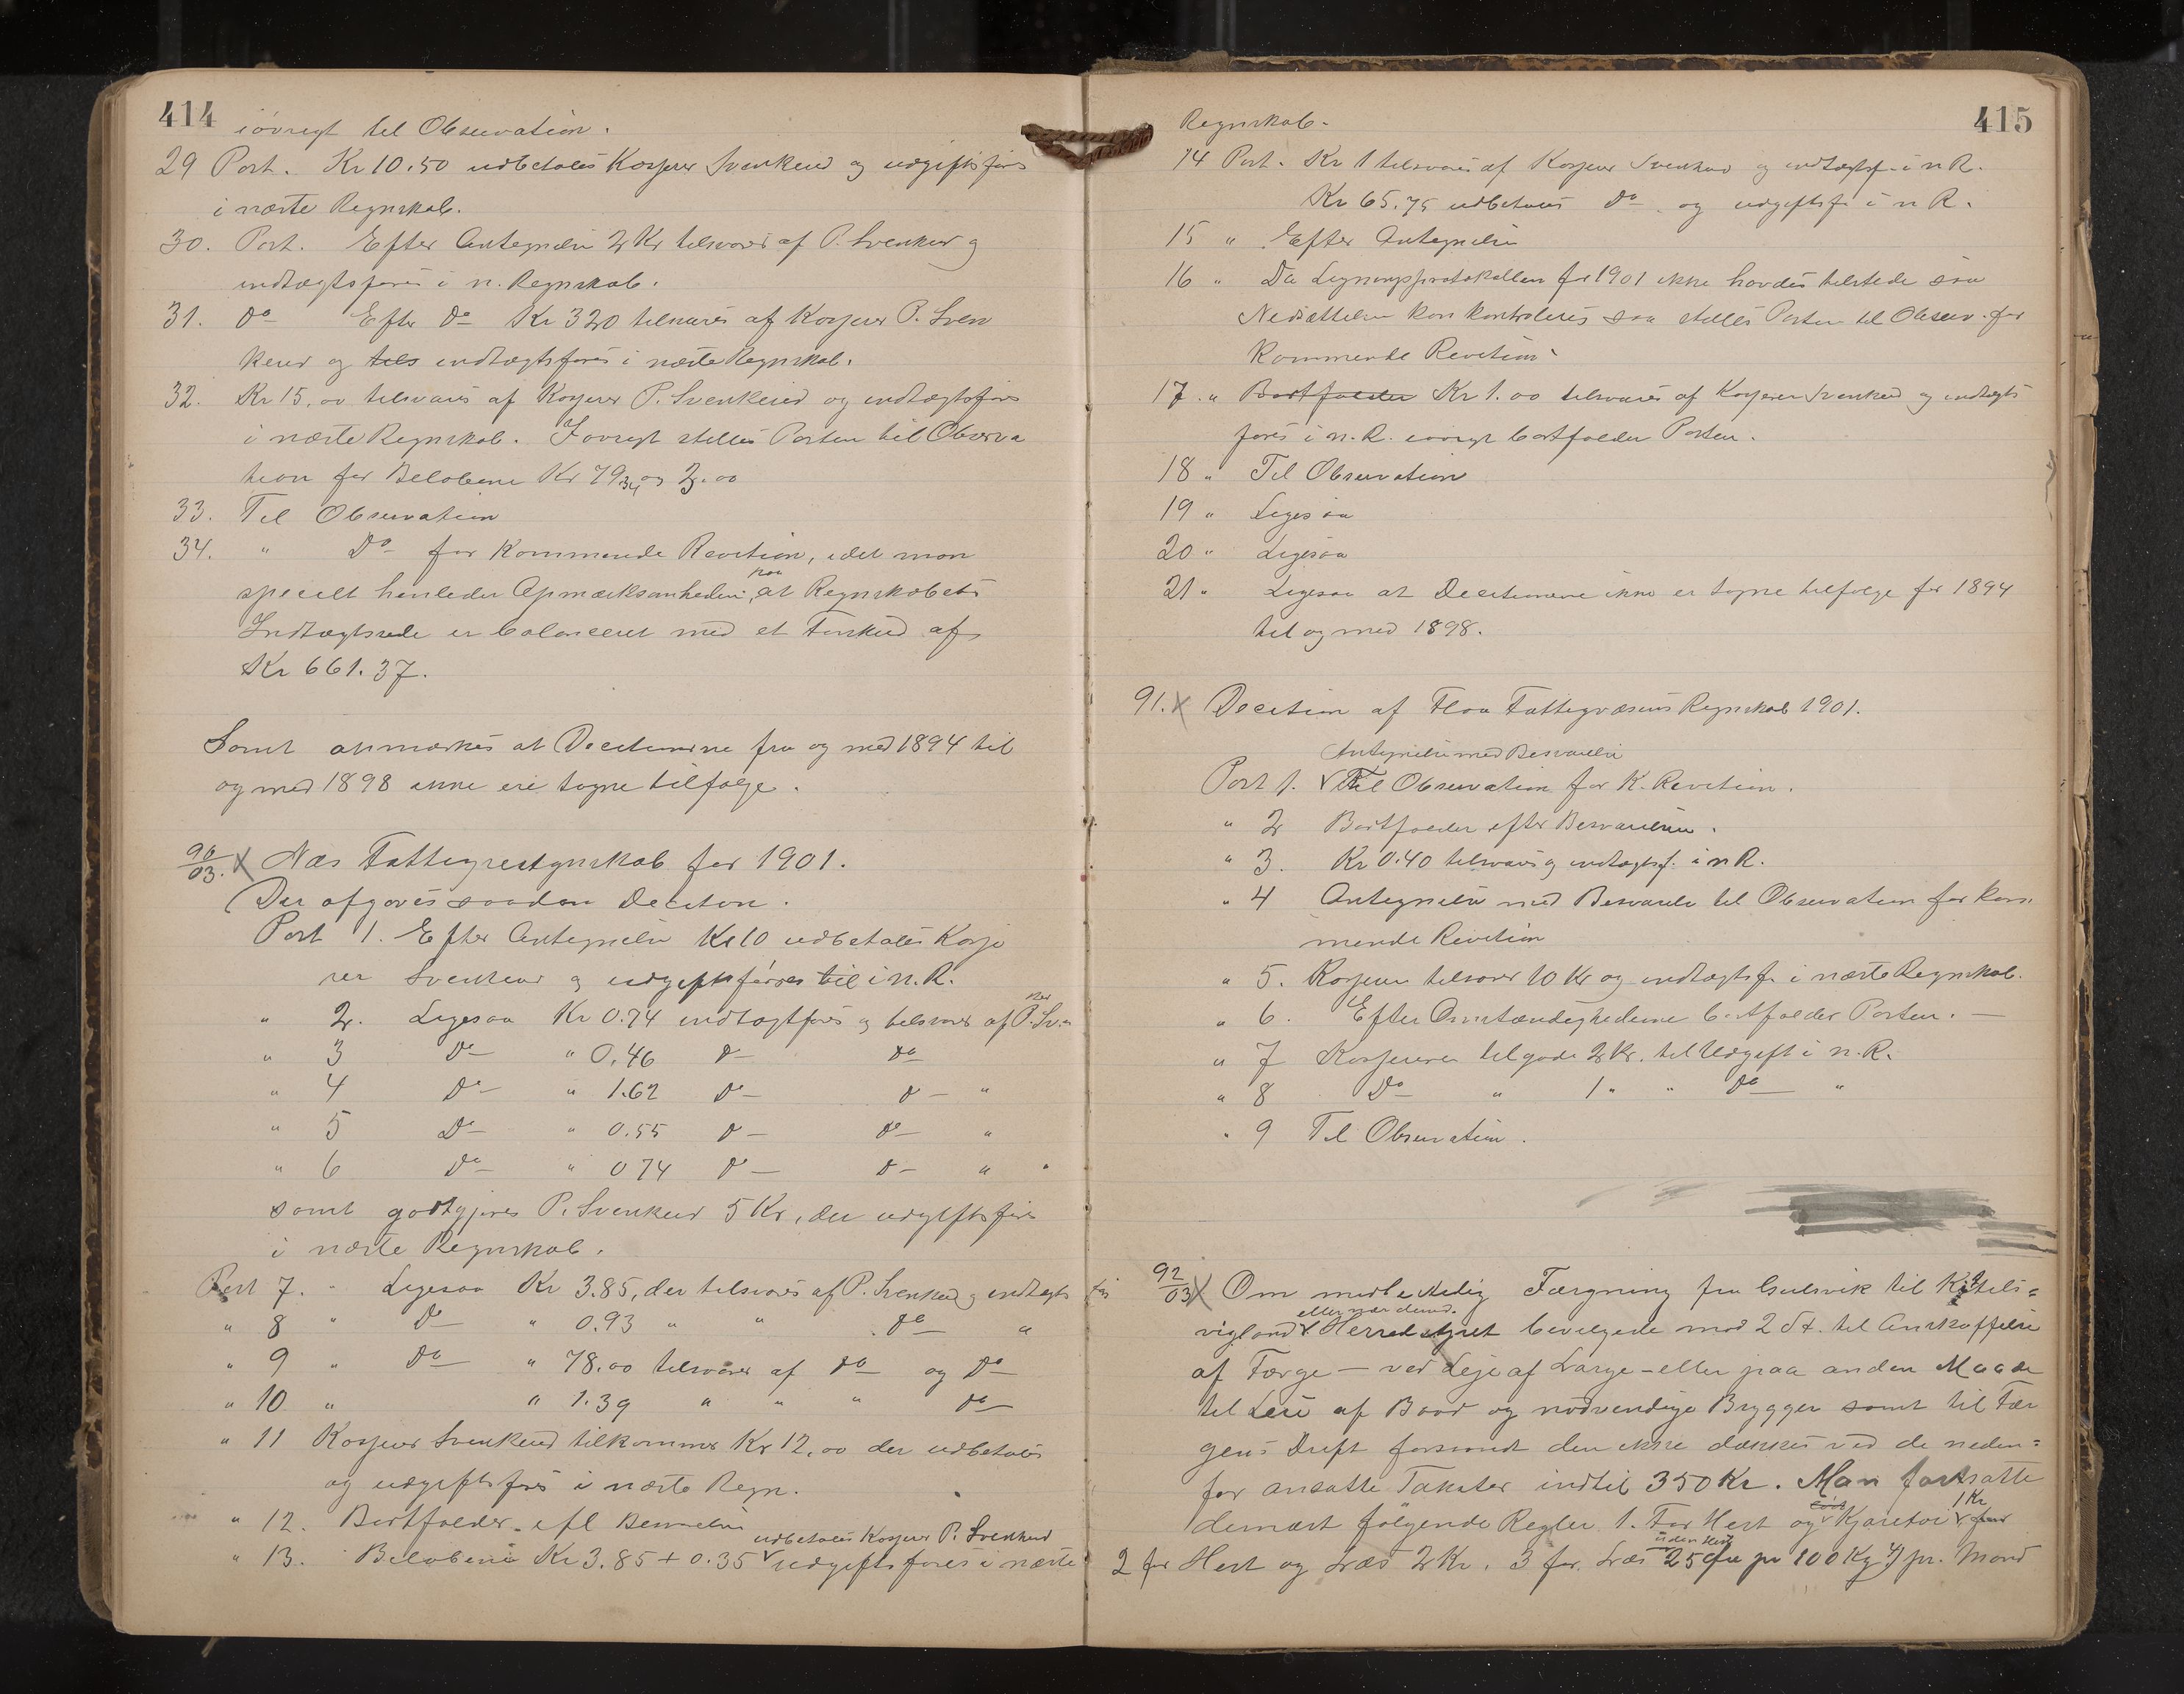 414
iøvrigt til Observation.
29 Post. Kr 10.50 udbetales Kasserer Svenkerud og udgiftsføres
i næste Regnskab.
30. Post. Efter Antegnelse 2 Kr tilsvares af P. Svenkerud og
indtægtsføres i n. Regnskab.
31. Do Efter Do Kr 320 tilsvares af Kasserer P. Sven
kerud og tils indtægtsføres i næste Regnskab.
32. Kr 15,00 tilsvares af Kasserer P. Svenkerud og indtægtsføres
i næste Regnskab. Iøvrigt stilles Posten til Observa
tion for Beløbene Kr 79,34 og 2.00
33. Til Observation
34. " Do for kommende Revition, idet man
specielt henleder Opmærksomheden paa at Regnskabets
Indtægtsside er balanceret med et Forskud af
Kr 661.37.
Samt anmærkes at Decitionerne fra og med 1894 til
og med 1898 ikke ere tagne tilfølge.
90/03. X Næs Fattigrestgnskab for 1901.
Der afgøves saadan Decition.
Post 1. Efter Antegnelse Kr 10 udbetales Kasse
rer Svenkerud og udgiftsføres til i n. R.
" 2. Ligesaa Kr 0.74 indtægtføres og tilsvares af P. Sv.
" 3 Do " 0.46 Do Do
" 4 Do " 1.62 Do Do "
" 5 Do " 0.55 Do Do "
" 6 Do " 0 74 Do Do " "
samt godtgjøres P. Svenkerud 5 Kr, der udgiftsføres
i næste Regnskab.
Post 7. " Ligesaa Kr 3.85, der tilsvares af P. Svenkerud og indtægts før
" 8 " Do " 0.93 " " Do "
" 9 " Do " 78.00 tilsvares af Do og Do
" 10 " " 1.39 " " " Do
" 11 Kasserer Svenkerud tilkommer Kr 12,00 der udbetales
og udgiftsføres i næste Regn.
" 12. Bortfalder efl Besvarelse
udbetales Kasserer P. Svenkerud
" 13. Beløbene Kr 3.85 + 0.35 udgiftsføres i næste
415
Regnskab.
14 Post. Kr 1 tilsvares af Kasserer Svenkerud og indtægtsf. i n R.
Kr 65.75 udbetales Do og udgiftsf. i n R.
15 " Efter Antegnelse
16 " Da Ligningsprotokollen for 1901 ikke havdes tilstede saa
Nedsættelsen kan kontroleres saa stilles Posten til Observ. for
kommende Revition.
17. " Bortfalder Kr 1.00 tilsvares af Kasserer Svenkerud og indtægts
føres i n. R. iøvrigt bortfalder Posten.
18 " Til Observation
19 " Ligesaa
20 " Ligesaa
21 " Ligesaa at Decitionene ikke er tagne tilfølge for 1894
til og med 1898.
91. X Decition af Flaa Fattigvæsens Regnskab 1901.
Antegnelse med Besvarelse
Post 1. Til Observation for K. Revition.
" 2 Bortfalder efter Besvarelsen.
" 3. Kr 0.40 tilsvares og indtægtsf. i n R.
" 4 Antegnelse med Besvarelse til Observation for kom
mende Revition
" 5. Kasserer tilsvarer 10 Kr og indtægtsf. i næste Regnskab.
" 6. Efter Omstændighederne bortfalder Posten. —
" 7 Kassereren tilgode 2 Kr. til Udgift i n. R.
" 8 Do " 1 " " Do "
" 9 Til Observation.
92/03 X Om midlertidig Færgning fra Gulsvik til Kittils=
eller nær derved.
vigland Herredstyret bevilgede mod 2 St. til Anskaffelse
af Færge — ved Leje af Færge - eller paa anden Maade
til Leie af Baad og nødvendige Brygger samt til Fær
gens Drift forsaavidt den ikke dækkes ved de neden=
for ansatte Takster indtil 350 Kr. Man fastsatte
dernæst følgende Regler 1. For Hest og Kjøretøi 1 Kr
uden Hest
2 for Hest og Læs 2 Kr. 3 for Læs 25 Øre pr 100 Kg 4) pr. Mand